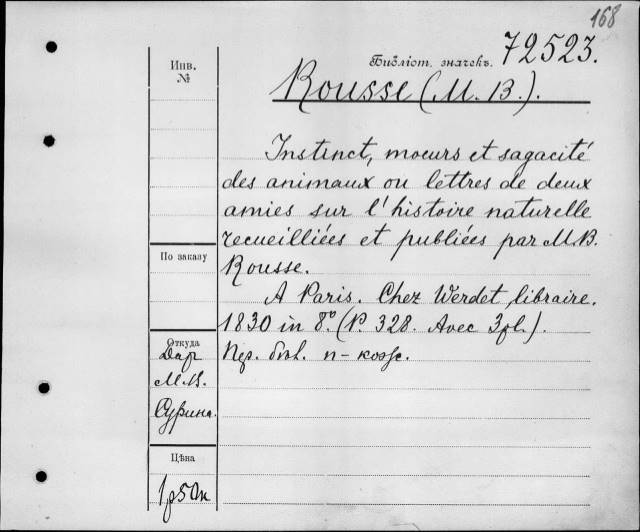 168
Библіот. значекъ. 72523.
Rousse (M. B.).
Instinct, moeurs et sagacité
des animaux ou lettres de deux
amies sur l'histoire naturelle
recueilliées et publiées par M.B.
Rousse.
A Paris. Chez Werdet libraire.
1830 in 8°. (P. 328. Avec 3 pl.).
Пер. п-кож.
Инв.
№
По заказу
Откуда
Дар
М.В.
Сурина.
Цѣна
1р50к